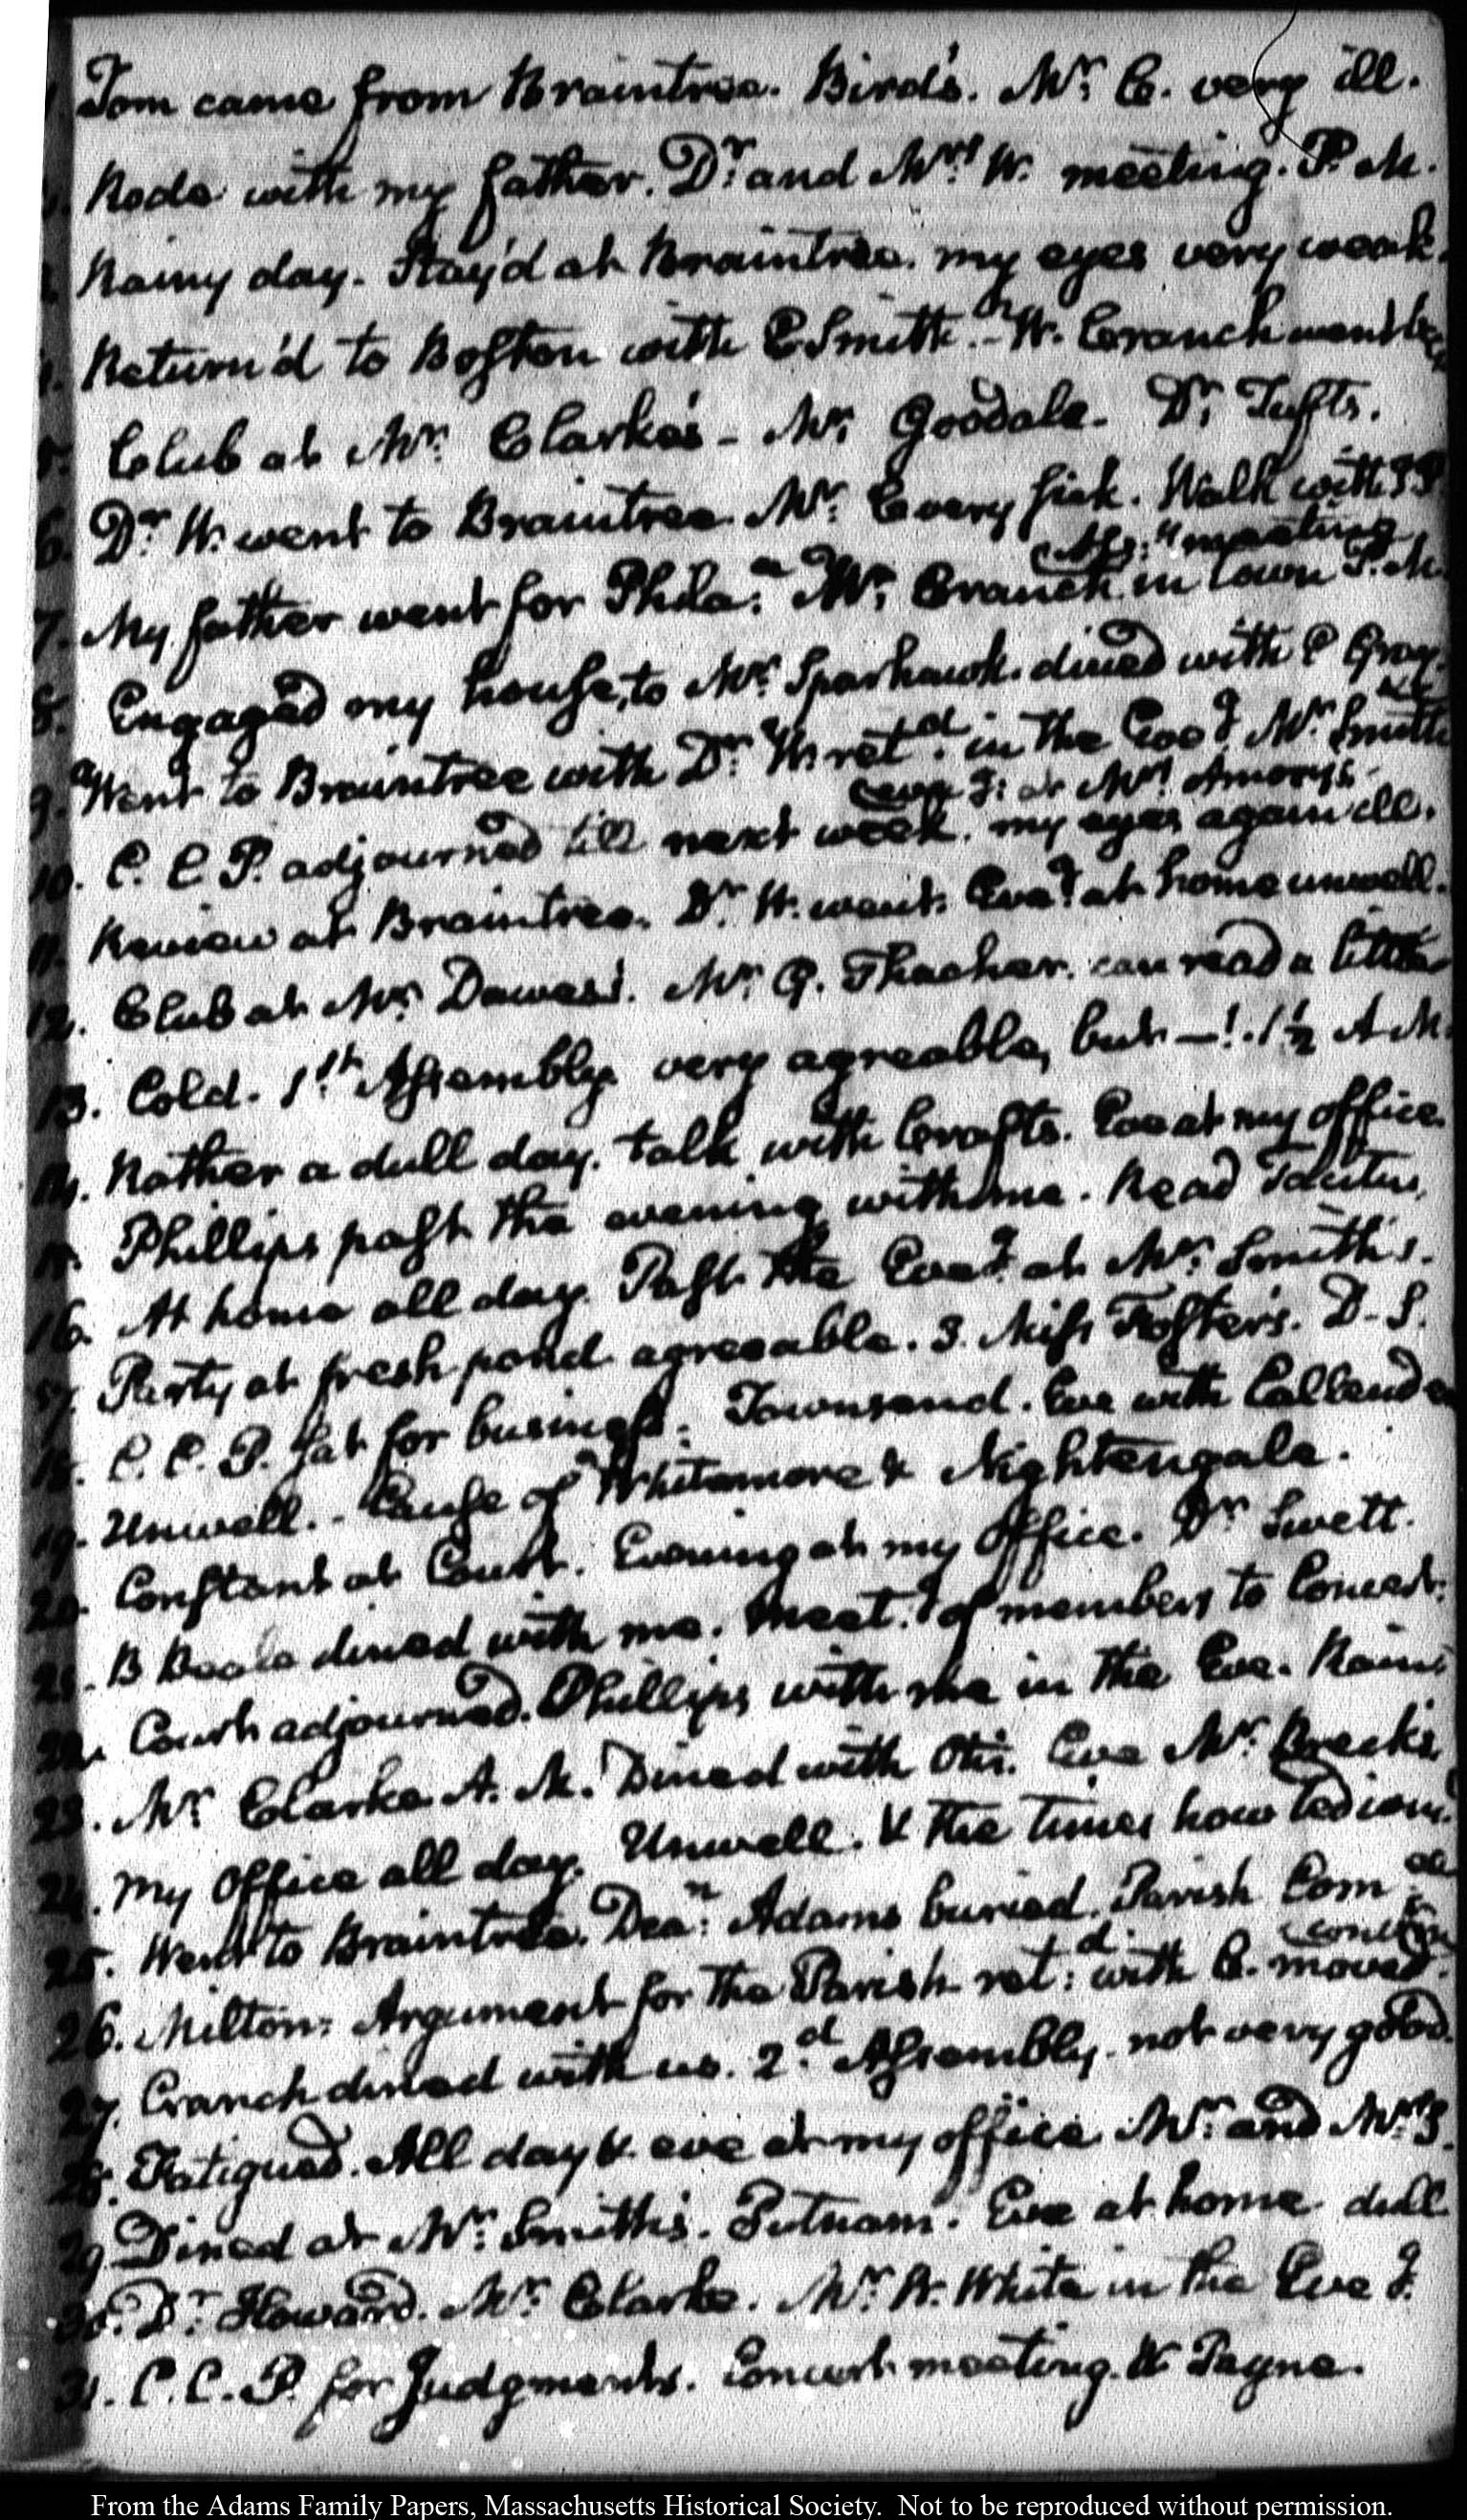 Tom came from Braintree. Bird's. Mr. C. very ill.
Rode with my father. Dr. and Mrs. W. meeting. P. M.
Rainy day. Stay'd at Braintree. my eyes very weak.
Return'd to Boston with C Smith. - W. Cranch went
5. Club at Mr. Clarke's - Mr. Goodale. Dr. Tufts.
6. Dr. W. went to Braintree. Mr. C very sick. Walk with
meeting
7. My father went for Phila.a Mr. Cranch in town P. M.
8. Engaged my house, to Mr. Sparhawk. dined with C Gray.
9. Went to Braintree with Dr. W. ret.d in the Eve.g Mr. Smith
eve g: at Mrs. Amory's
10. C. C. P. adjourned till next week. my eyes again ill.
11. Review at Braintree. Dr. W. went. Eve.g at home unwell.
12. Club at Mr. Dawes's. Mr. G. Thacher. can read a little
13. Cold. 1st Assembly. very agreable, but —!. 1½ A M.
14. Rather a dull day. talk with Crafts. Eve at my office.
15. Phillips past the evening with me. Read Tacitus
16. At home all day. Past the Eve.g at Mr. Smith's.
17. Party at fresh pond. agreeable. 3. Miss Foster's. D. S.
18. C. C. P. sat for business. Townsend. Eve with Callender
19. Unwell. - Cause of Whitamore & Nightengale.
20. Constant at Court. Evening at my Office. Dr Swett.
21. B Beale dined with me. Meet.g of members to Concert.
22. Court adjourned. Phillips with me in the Eve. Rain.
23. Mr. Clarke A. M. Dined with Otis. Eve Mr. Breck's
24. My Office all day. Unwell. & the times how tedious.
25. Went to Braintree. Dea.n Adams buried. Parish Com
26. Milton. Argument for the Parish ret.d with C. moved.
27. Cranch dined with us. 2.d Assembly. not very good.
28. Fatigued. All day & eve at my office Mr. and Mrs. S.
29. Dined at Mr. Smith's. Putnam. Eve at home dull.
30. Dr. Howard. Mr. Clarke. Mr. W. White in the Eve g.
31. C. C. P. for Judgments. Concert meeting. W Payne.
From the Adams Family Papers, Massachusetts Historical Society. Not to be reproduced without permission.